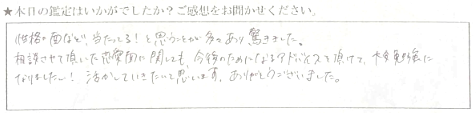 ★本日の鑑定はいかがでしたか?ご感想をお聞かせください。
性格の面など、当たってる!と思うことが多々あり驚きました。
相談させて頂いた恋愛面に関しても、今後のためになるアドバイスを頂けて、大変勉強に
なりました〜!活かしていきたいと思います。ありがとうございました。